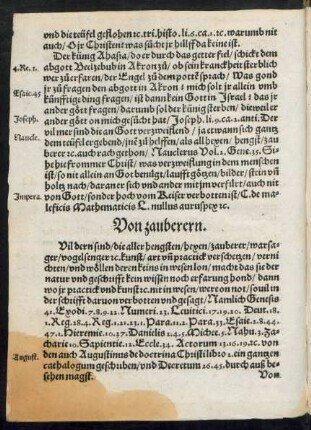 vnd die teüfel geflohen ꝛc. tri. histo. li. 6. ca. 1. ꝛc. warumb nit
auch / O jr Christen was sücht jr hilff da keine ist.
Der künig Ahasia / do er durch das getter fiel / schickt dem
4. Re. 1.
abgott Beelzebub in Akron zů / ob sein kranckheit sterblich
wer zů erfaren / der Engel zů dem pottē sprach / Was gond
jr zů fragen den abgott in Akron
Esaie. 45
künfftige ding fragen / ist dann kein Gott in Israel
ander gött fragen / darumb sol der künig sterben / die weil er
Joseph.
ander gött on mich gesücht hat / Joseph. li. 9. ca. 1. anti. Der
vil mer sind die an Gott verzweiflend / ja etwann sich gantz
Nauclē.
dem teüfel ergebend / jnē zů helffen / als all hexen / hengst / zau
berer ꝛc. auch rach gethon / Nauclerus Vol. 1. Gene. 35. Si
he für frommer Christ / was verzweiflung in dem menschen
ist / so nit allein an Got benügt / laufft götzen / bilder / stein vn̄
holtz nach / daran er sich vnd ander mit jm verfürt / auch nit
Impera.
von Gott / sonder hoch vom Keiser verbotten ist / C. de ma
leficis Mathematicis L. nullus auruspex ꝛc.
Von zauberern.
Vil dern sind / die aller hengsten / hexen / zauberer / warsa
ger / vogelsenger ꝛc. kunst / art vn̄ practick verschetzen / verni
chten / vnd wöllen deren keins in wesen lon / macht das sie der
natur vnd geschrifft kein wissen noch erfarung hond / dann
wo jr practick vnd kunst ꝛc. nit in wesen / wer on not / soul in
der schrifft daruon verbotten vnd gesagt / Namlich Genesis
41. Exodi. 7. 8. 9. 22. Numeri. 23. Leuitici. 17. 19. 20. Deut. 18.
1. Reg. 18. 4. Reg. 21. 23. 1. Para. 11. 2. Para. 33. Esaie. 2. 8. 44.
47. 1. Hieremie. 10. 27. Danielis 2. 4. 5. Michee. 5. Nahu. 3. Za
charie 10. Sapientie. 12. Eccle. 34. Actorum 13. 16. 19. ꝛc. von
August.
den auch Augustinus de doctrina Christi libro 2. ein gantzen
cathalogum geschriben / vnd Decretum 26. 45. durch auß be
schen magst.
Von